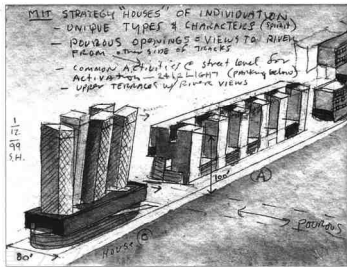 MIT STRATEGY "HOUSES" OF INDIVIDUATION
— UNIQUE TYPES & CHARACTERS (spirit)
— POUROUS OPENINGS = VIEWS TO RIVER
FROM OTHER SIDE OF TRACKS
— COMMON ACTIVITIES @ street level for
ACTIVATION — LIGHT (parking below)
— UPPER TERRACES w/ RIVER VIEWS
1
12
99
S.H.
100'
(A)
POUROUS
HOUSE (C)
80'